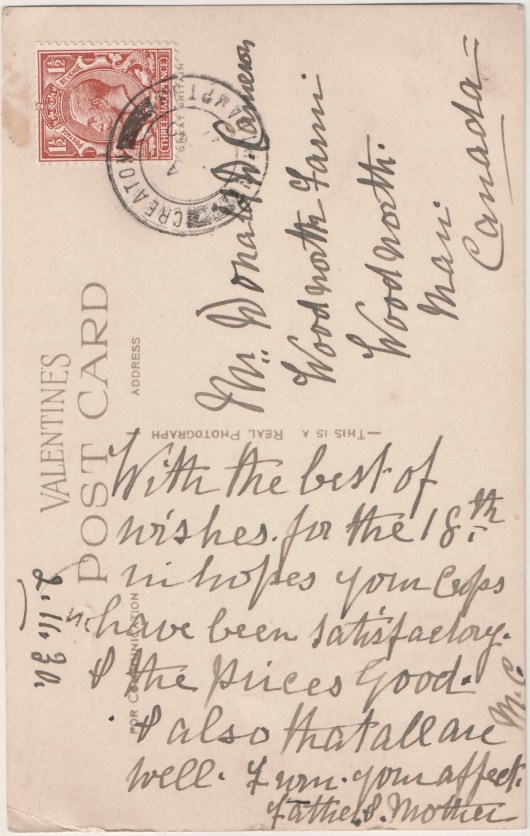 VALENTINE'S
POST CARD
FOR COMMUNICATION
ADDRESS
THIS IS A REAL PHOTOGRAPH
GREAT BRITAIN
POSTAGE REVENUE
1½ 1½
THREE HALF PENCE
CREATON
Mr. Donald M. Cameron
Woodnorth Farm
Woodnorth.
Man.
Canada
With the best of
wishes. for the 18th
in hopes your Cops
have been satisfactory.
& the prices Good.
& also that all are
well. From. your affect.
Father & Mother
M. C.